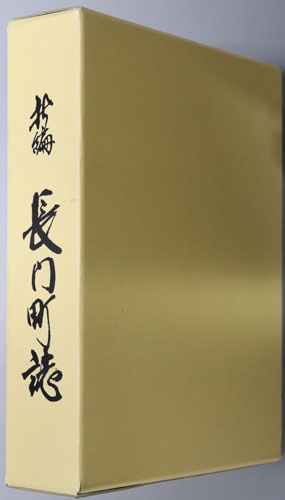 新編
長門町誌